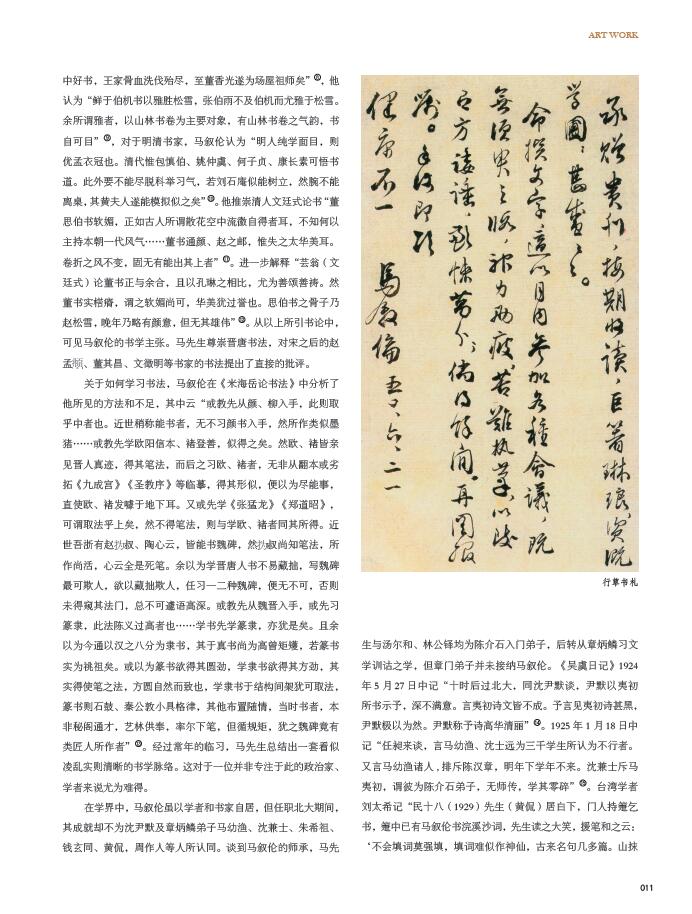 ART WORK
中好书，王家骨血洗伐殆尽，至董香光遂为场屋祖师矣”⑧，他
认为“鲜于伯机书以雅胜松雪，张伯雨不及伯机而尤雅于松雪。
余所谓雅者，以山林书卷为主要对象，有山林书卷之气韵，书
自可目”，对于明清书家，马叙伦认为“明人纯学面目，则
优孟衣冠也。清代惟包慎伯、姚仲虞、何子贞、康长素可悟书
道。此外要不能尽脱科举习气，若刘石庵似能树立，然腕不能
离桌，其黄夫人遂能模拟似之矣”。他推崇清人文廷式论书“董
思伯书软媚，正如古人所谓散花空中流徽自得者耳，不知何以
主持本朝一代风气……董书通颜、赵之邮，惟失之太华美耳。
卷折之风不变，固无有能出其上者”。进一步解释“芸翁（文
廷式）论董书正与余合，且以孔琳之相比，尤为善颂善祷。然
董书实楛瘠，谓之软媚尚可，华美犹过誉也。思伯书之骨子乃
赵松雪，晚年乃略有颜意，但无其雄伟”。从以上所引书论中，
可见马叙伦的书学主张。马先生尊崇晋唐书法，对宋之后的赵
孟頫、董其昌、文徵明等书家的书法提出了直接的批评。
关于如何学习书法，马叙伦在《米海岳论书法》中分析了
他所见的方法和不足，其中云“或教先从颜、柳入手，此则取
乎中者也。近世稍称能书者，无不习颜书入手，然所作类似墨
猪……或教先学欧阳信本、褚登善，似得之矣。然欧、褚皆亲
见晋人真迹，得其笔法，而后之习欧、褚者，无非从翻本或劣
拓《九成宫》《圣教序》等临摹，得其形似，便以为尽能事，
直使欧、褚发噱于地下耳。又或先学《张猛龙》《郑道昭》，
可谓取法乎上矣，然不得笔法，则与学欧、褚者同其所得。近
世吾浙有赵㧑叔、陶心云，皆能书魏碑，然㧑叔尚知笔法，所
作尚活，心云全是死笔。余以为学晋唐人书不易藏拙，写魏碑
最可欺人，欲以藏拙欺人，任习一二种魏碑，便无不可，否则
未得窥其法门，总不可遽语高深。或教先从魏晋入手，或先习
篆隶，此法陈义过高者也……学书先学篆隶，亦犹是矣。且余
以为今通以汉之八分为隶书，其于真书尚为高曾矩矱，若篆书
实为祧祖矣。或以为篆书欲得其圆劲，学隶书欲得其方劲，其
实得使笔之法，方圆自然而致也，学隶书于结构间架犹可取法，
篆书则石鼓、秦公敦小具格律，其他布置随情，当时书者，本
非秘阁通才，艺林供奉，率尔下笔，但循规矩，犹之魏碑竟有
类匠人所作者”。经过常年的临习，马先生总结出一套看似
凌乱实则清晰的书学脉络。这对于一位并非专注于此的政治家、
学者来说尤为难得。
在学界中，马叙伦虽以学者和书家自居，但任职北大期间，
其成就却不为沈尹默及章炳麟弟子马幼渔、沈兼士、朱希祖、
钱玄同、黄侃，周作人等人所认同。谈到马叙伦的师承，马先
承贈貴刊，按期收讀，巨著琳琅，實既
学圃，甚感々々。
命撰文字，適以月内參加各種會議，既
無須臾之暇，神力疲，苦難执筆，以致
方諉諈，歉悚，倘得餘间，再图报
手復即頌
健康不一　馬叙倫　五八、六、二一
行草书札
生与汤尔和、林公铎均为陈介石入门弟子，后转从章炳麟习文
学训诂之学，但章门弟子并未接纳马叙伦。《吴虞日记》1924
年 5 月 27 日中记“十时后过北大，同沈尹默谈，尹默以夷初
所书示予，深不满意。言夷初诗文皆不成。予言见夷初诗甚黑，
尹默极以为然。尹默称予诗高华清丽”。1925 年 1 月 18 日中
记“任昶来谈，言马幼渔、沈士远为三千学生所认为不行者。
又言马幼渔诸人，排斥陈汉章，明年下学年不来。沈兼士斥马
夷初，谓彼为陈介石弟子，无师传，学其零碎”。台湾学者
刘太希记“民十八（1929）先生（黄侃）居白下，门人持箑乞
书，箑中已有马叙伦书浣溪沙词，先生读之大笑，援笔和之云：
‘不会填词莫强填，填词难似作神仙，古来名句几多篇。山抹
011